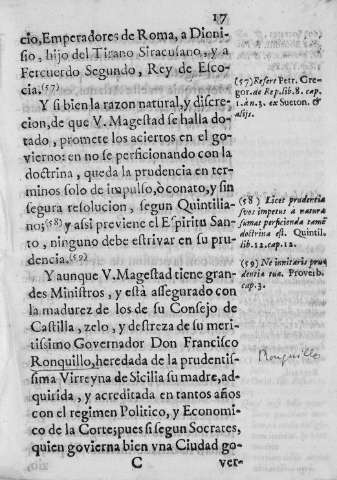 17
cio, Emperadores de Roma, a Dioni-
sio, hijo del Tirano Siracusano, y a
Fercuerdo Segundo, Rey de Esco-
cia. (57)
Y si bien la razon natural, y discre-
cion, de que V. Magestad se halla do-
tado, promete los aciertos en el go-
vierno: en no se perficionando con la
doctrina, queda la prudencia en ter-
minos solo de impulso, ò conato, y sin
segura resolucion, segun Quintilia-
no; (58) y assi previene el Espiritu San-
to, ninguno debe estrivar en su pru-
dencia. (59)
Y aunque V. Magestad tiene gran-
des Ministros, y està assegurado con
la madurez de los de su Consejo de
Castilla, zelo, y destreza de su meri-
tissimo Governador Don Francisco
Ronquillo, heredada de la prudentis-
sima Virreyna de Sicilia su madre, ad-
quirida, y acreditada en tantos años
con el regimen Politico, y Economi-
co de la Corte; pues si segun Socrates,
quien govierna bien vna Ciudad go-
C ver-
(57) Refert Petr. Gre-
gor. de Rep. lib. 8. cap.
1. à n. 3. ex Sueton. &
alijs.
(58) Licet prudentia
suos impetus à natura
sumat perficienda tamē
doctrina est. Quintil.
lib. 12. cap. 12.
(59) Ne innitaris pru
dentia tua. Proverb.
cap. 3.
Ronquillo